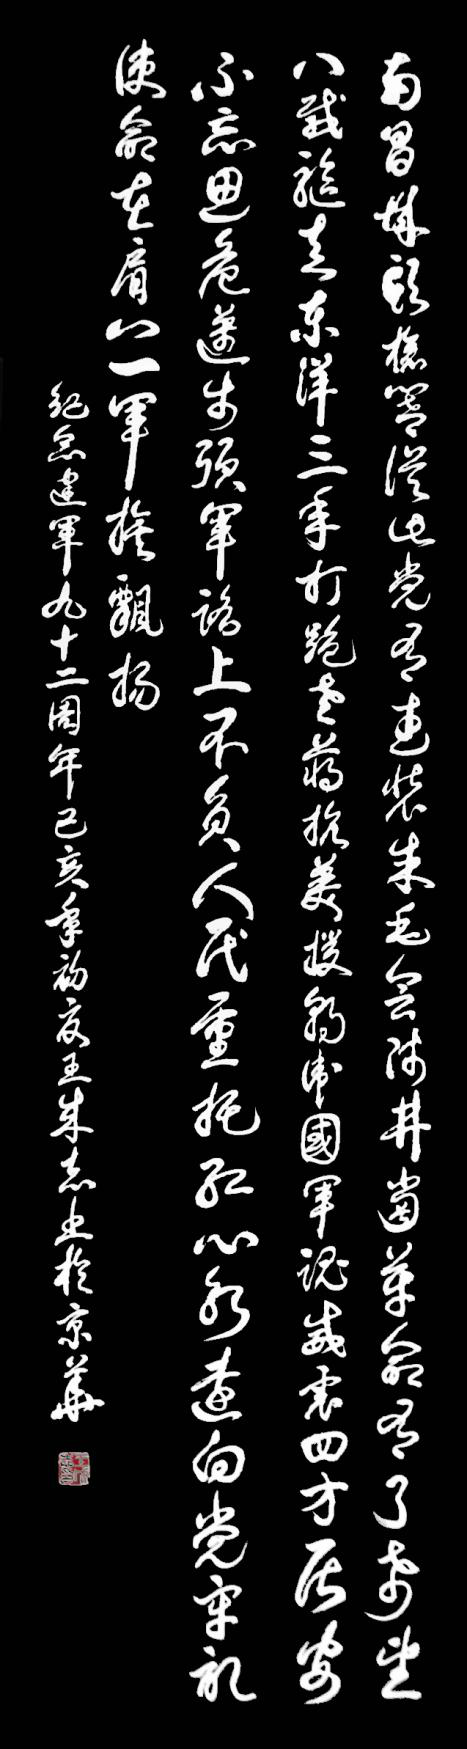 南昌城头枪响从此党有武装朱毛会师井岗革命有了希望
八载驱走东洋三年打跑老蒋抗美援朝卫國军魂威震四方居安
不忘思危迈步强军路上不负人民重托红心永远向党牢记
使命在肩八一军旗飘扬
纪念建军九十二周年己亥年初夏王朱志书于京華